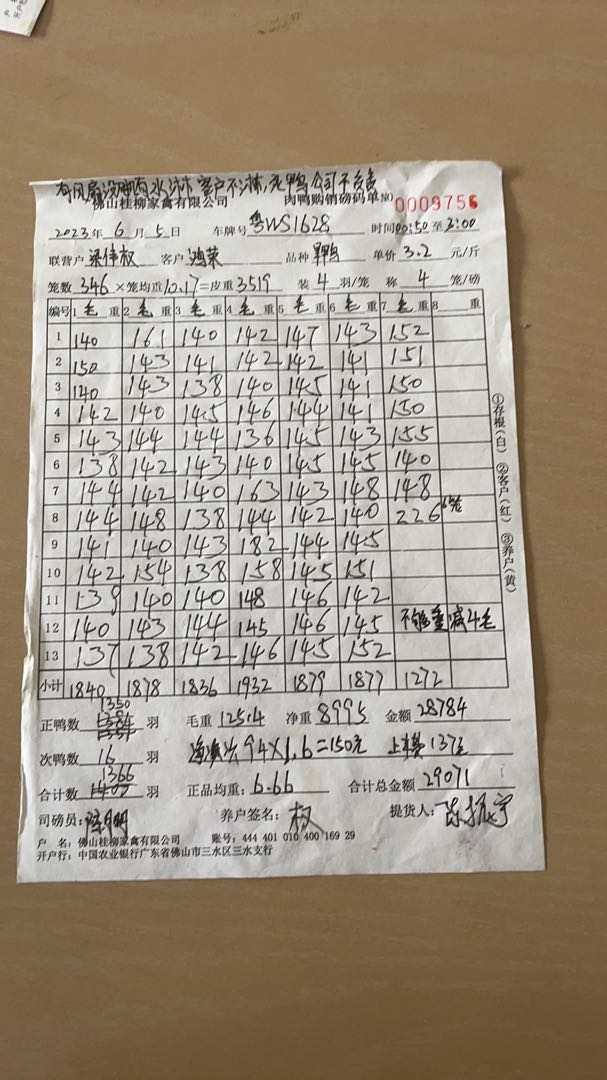 佛山桂柳家禽有限公司 肉鸭购销磅码单 № 0009756
2023 年 6 月 5 日 车牌号 粤WS1628 时间 00:50 至 3:00
联营户 梁伟权 客户 鸿荣 品种 单价 3.2 元/斤
笼数 346 ×笼均重 10.17 =皮重 3519 装 4 羽/笼 称 4 笼/磅
编号 1 毛 重 2 毛 重 3 毛 重 4 毛 重 5 毛 重 6 毛 重 7 毛 重 8 重
1 140 161 140 142 147 143 152
2 150 143 141 142 142 141 151
3 140 143 138 140 145 141 150
4 142 140 145 146 144 141 150
5 143 144 144 136 145 143 155
6 138 142 143 140 145 145 140
7 144 142 140 163 143 148 148
8 144 148 138 144 142 140 226 6笼
9 141 140 143 182 144 145
10 142 154 138 158 145 151
11 139 140 140 148 146 142
12 140 143 144 145 146 145 减4毛
13 137 138 142 146 145 152
小计 1840 1878 1836 1932 1879 1877 1272
①存根(白) ②客户(红) ③养户(黄)
1350
正鸭数 羽 毛重 12514 净重 8995 金额 28784
次鸭数 16 羽 94×1.6=150元 137元
1366
合计数 羽 正品均重: 6.66 合计总金额 29071
司磅员: 养户签名: 权 提货人:
户 名: 佛山桂柳家禽有限公司 账号: 444 401 010 400 169 29
开户行: 中国农业银行广东省佛山市三水区三水支行